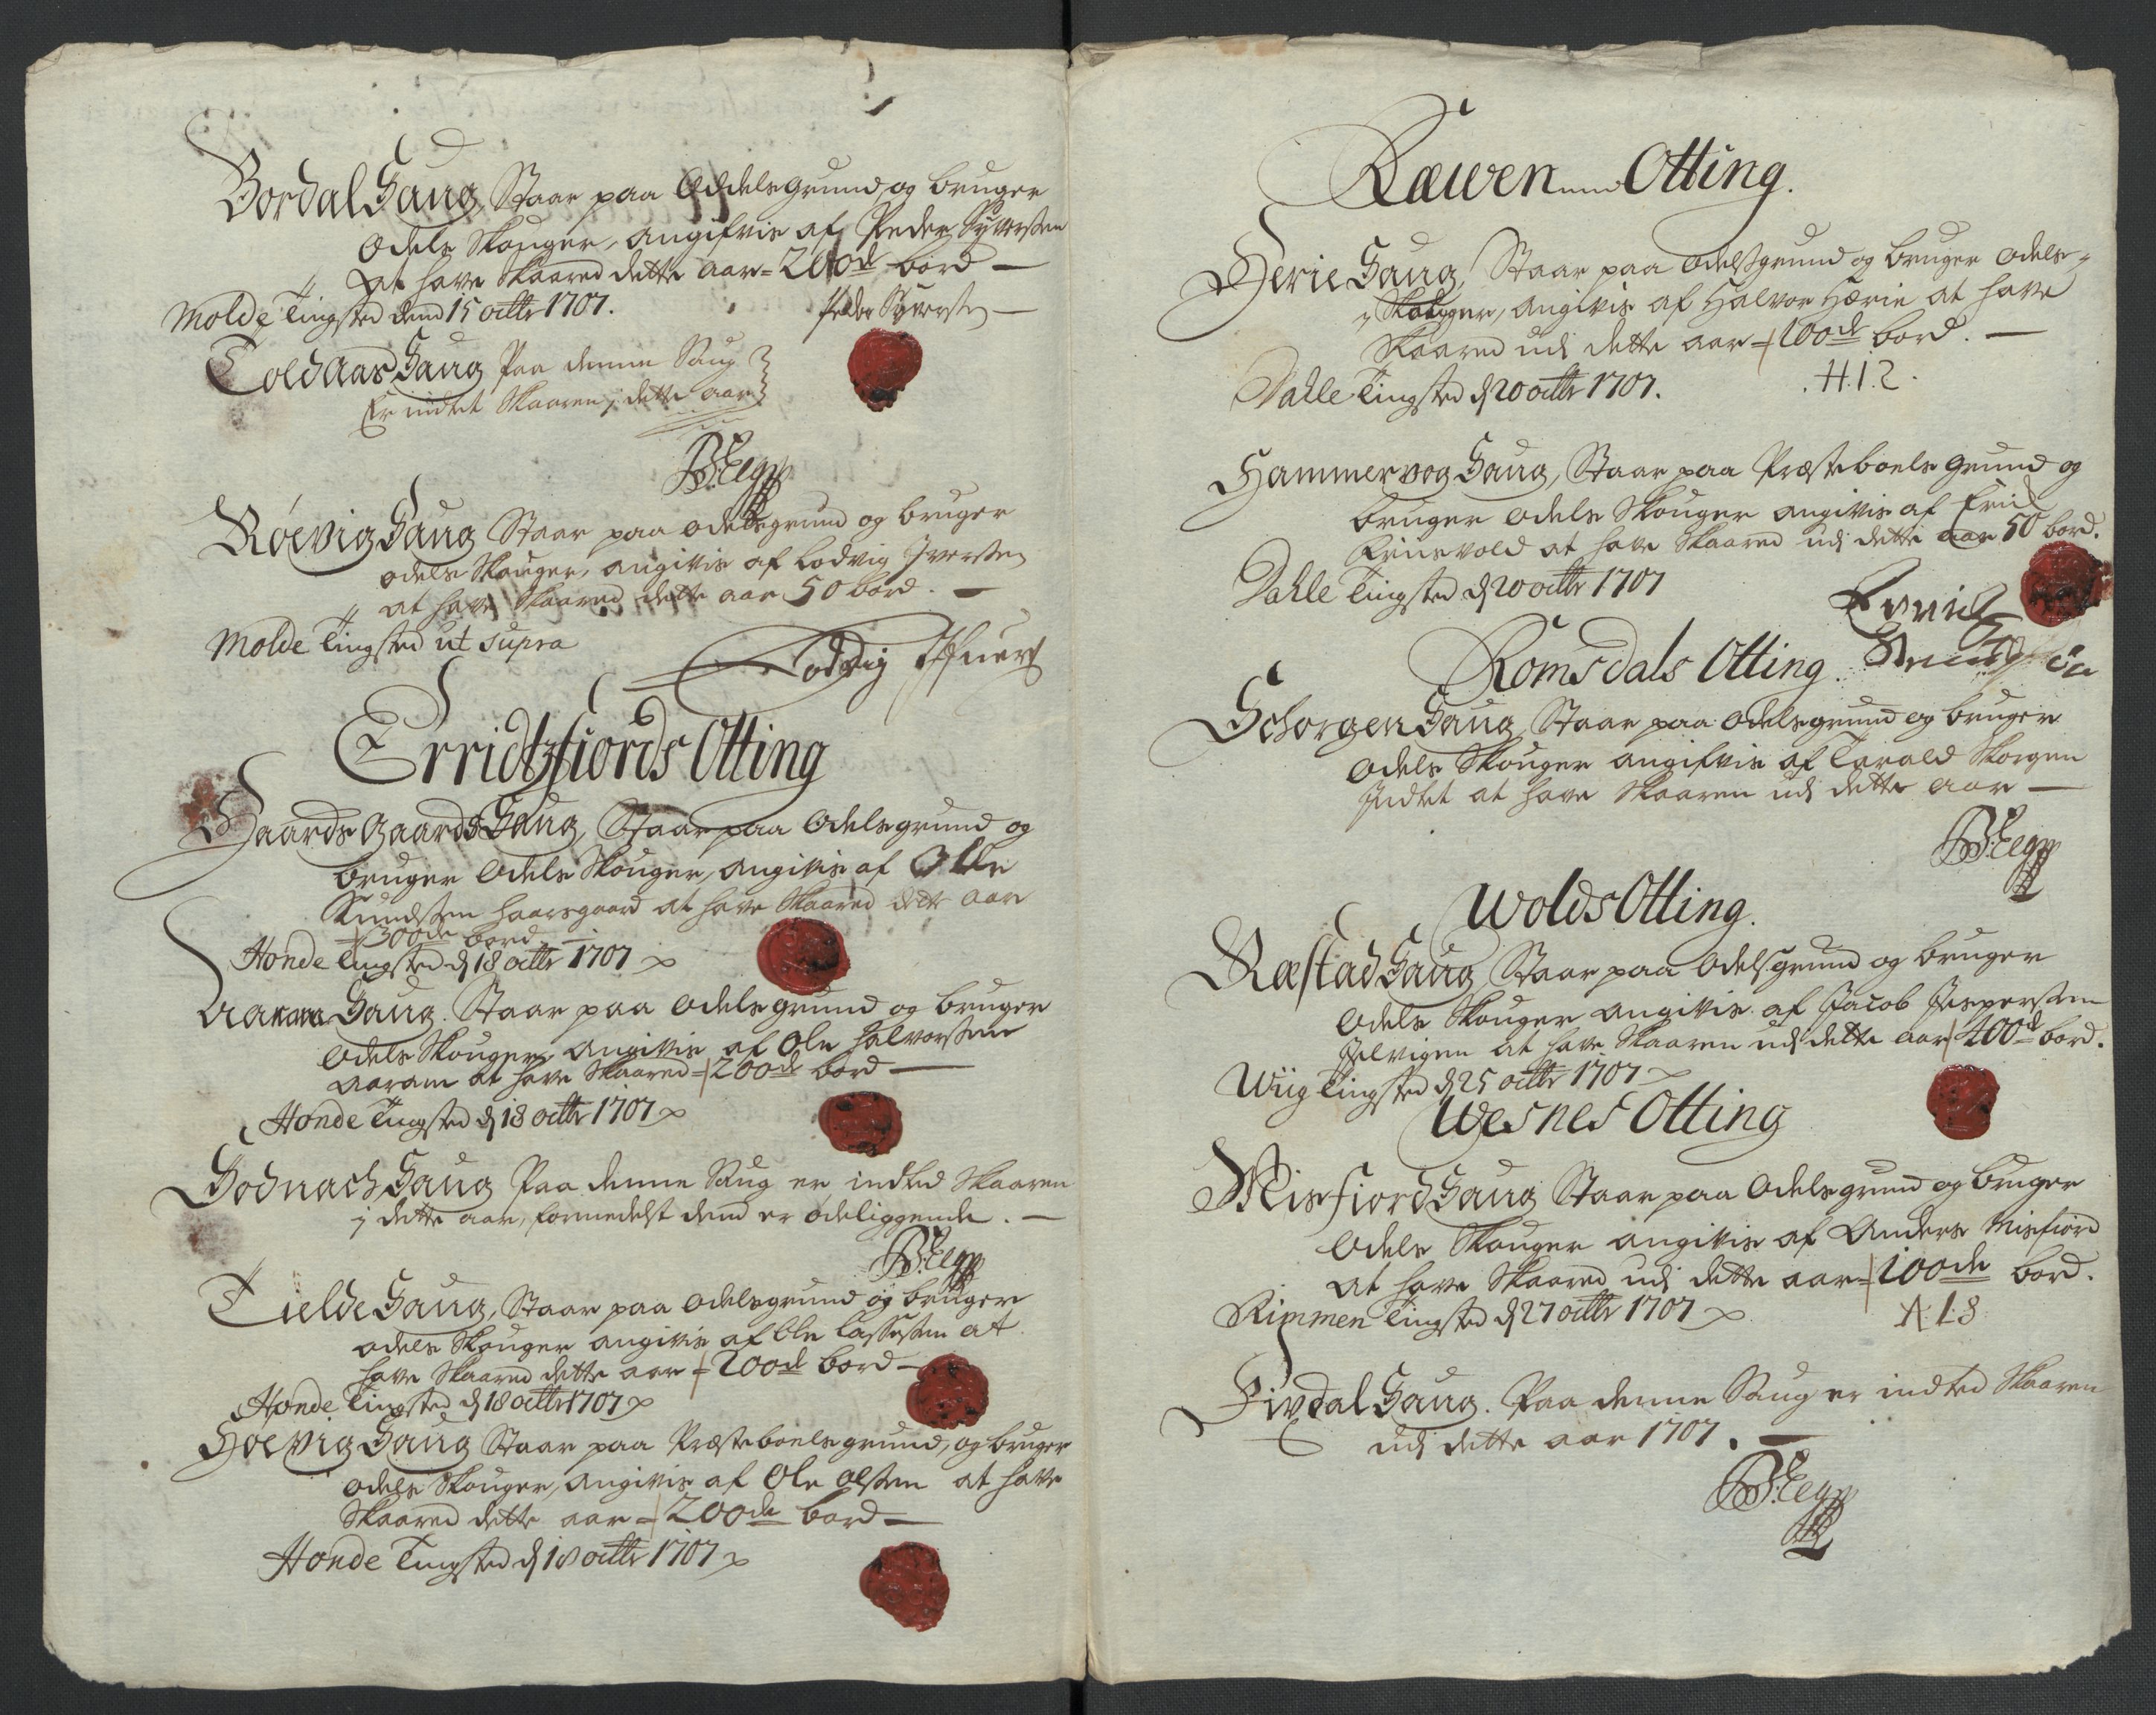 Bordal Saug, Staar paa Oddelsgrund og bruger
Odels Skouger, angifvis af Peder Syversen
At have Skaared dette aar = 200de bord —
Molde Tingsted dend 15 octbr 1707. Peder Syversen —
Toldaas Saug Paa denne Saug
Er indtet Skaaren i dette aar
Röevig Saug Staar paa odelsgrund og bruger
odels Skouger, angivis af Lodvig Iversen
at have Skaared dette aar 50 bord. —
Molde Tingsted ut supra
Lodvig Iffuers
Erridtzfiords Otting
Haardsgaards Saug, Staar paa Odelsgrund og
bruger Odels Skouger, angivis af Olle
Knudsen Haarsgaard at have Skaared dette aar
300de bord —
Honde Tingsted d 18 octbr 1707
Saug. Staar paa odelsgrund og bruger
Odels Skouger angivis af Ole Halvorsen
Aaram at have Skaared = 200de bord —
Honde Tingsted d 18 octbr 1707
Bodnach Saug Paa denne Saug er indted Skaaren
i dette aar, formedelst dend er ödeliggende. —
Tielde Saug, Staar paa odelsgrund og bruger
odels Skouger angivis af Ole Lassesen at
have Skaared dette aar = 200de bord —
Honde Tingsted d 18 octbr 1707
Hoevig Saug Staar paa Præsteboels grund, og bruger
odels Skouger, angivis af Ole Olsen at have
Skaared dette aar = 200de bord —
Honde Tingsted d 18 octbr 1707
Ræwen Otting.
Herie Saug, Staar paa odelsgrund og bruger odels
Skouger, angivis af Halvor Hærie at have
Skaared udi dette aar = 200de bord. —
Dahle Tingsted d 20 octbr 1707. H.I.2.
Hammervog Saug, Staar paa Præsteboels grund og
bruger odels Skouger angivis af Erich
at have Skaared udi dette aar 50 bord.
Dahle Tingsted d 20 octbr 1707
Romsdals Otting
Schorgen Saug, Staar paa odelsgrund og bruger
odels Skouger angifvis af Tarald Skorgen
Indtet at have Skaaren udi dette aar —
Wolds Otting.
Ræstad Saug Staar paa Odelsgrund og bruger
Odels Skouger angivis af Jacob Jespersen
at have Skaaren udi dette aar 400d bord.
Wiig Tingsted d 25 octbr 1707
Wesnes Otting
Misfiord Saug Staar paa Odelsgrund og bruger
Odels Skouger angivis af Anders Misfiord
at have Skaared udi dette aar = 100de bord.
Rimmen Tingsted d 27 octbr 1707 A.I.S
Saug. Paa denne Saug er indted Skaaren
udi dette aar 1707. —